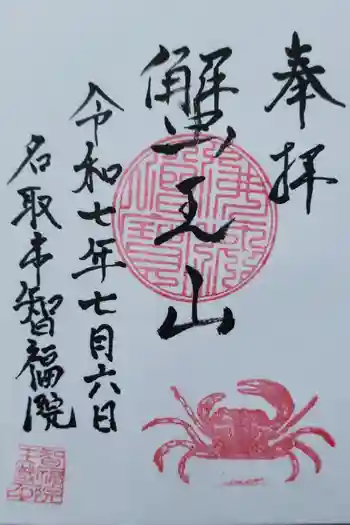 奉拝
蟹王山
令和七年七月六日
名取市智福院